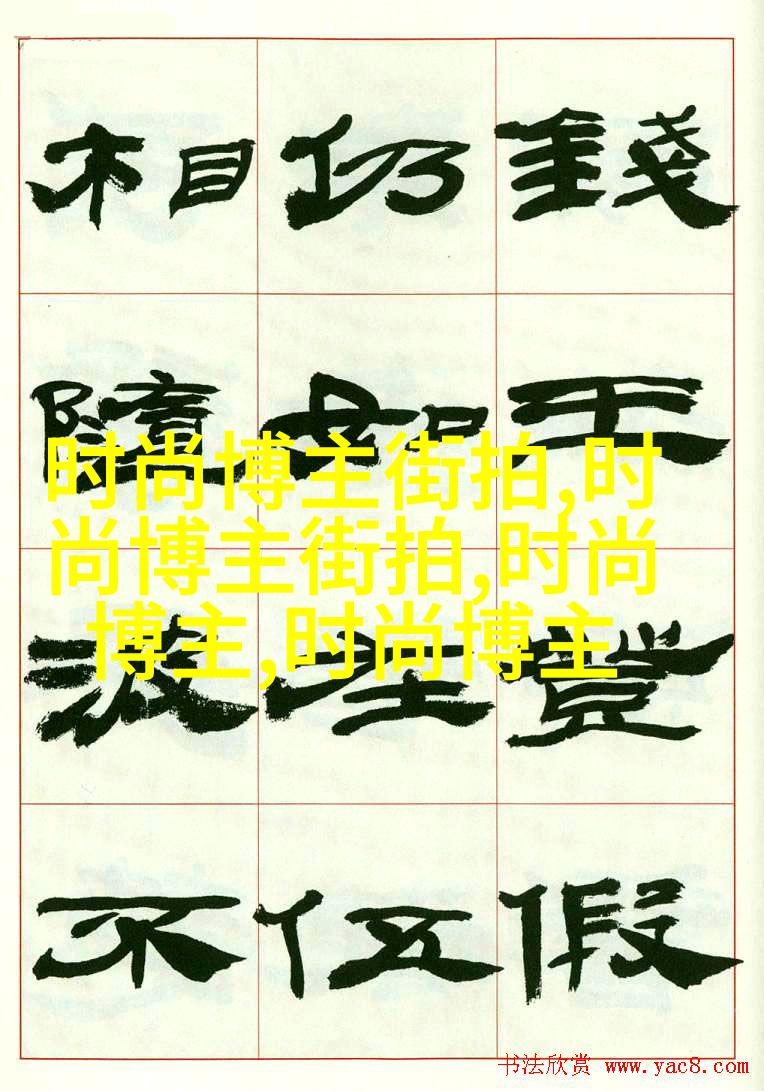 相仍錢
隨如王
波理登
不伍假
时尚博主街拍,时
尚博主街拍,时尚
博主,时尚博主
书法欣赏 www.yac8.com